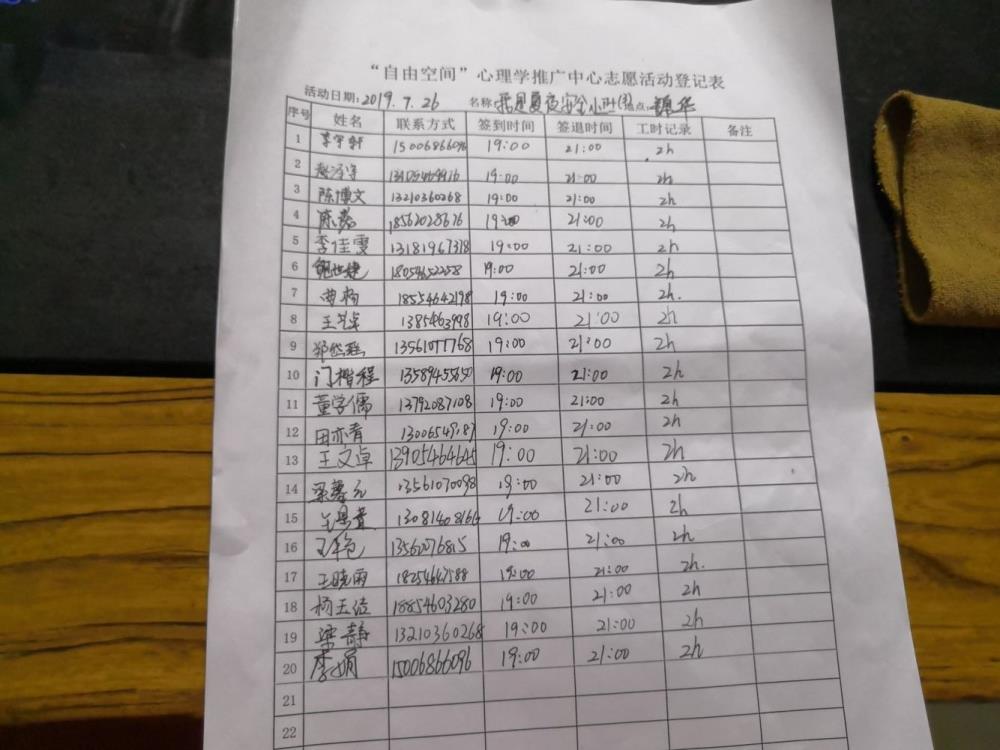 “自由空间”心理学推广中心志愿活动登记表
活动日期:2019.7.26 名称:我是夏夜安全小卫士 地点:锦华
序号 姓名 联系方式 签到时间 签退时间 工时记录 备注
1 李宇轩 15006866096 19:00 21:00 2h
2 19:00 21:00 2h
3 陈博文 13210360268 19:00 21:00 2h
4 18562028676 19:00 21:00 2h
5 李佳雯 13181967378 19:00 21:00 2h
6 鲍世婕 18054652258 19:00 21:00 2h
7 曲杨 18554642198 19:00 21:00 2h.
8 1385463998 19:00 21:00 2h
9 13561077768 19:00 21:00 2h
10 门楷程 13589455650 19:00 21:00 2h
11 董学儒 13792087108 19:00 21:00 2h
12 田亦青 19:00 21:00 2h
13 王文卓 13905464645 19:00 21:00 2h
14 13561070098 19:00 21:00 2h
15 13081408166 19:00 21:00 2h
16 王艳 13562076815 19:00 21:00 2h
17 王晓雨 18254647588 19:00 21:00 2h.
18 杨玉洁 18854603280 19:00 21:00 2h
19 梁静 13210360268 19:00 21:00 2h
20 李娟 15006866096 19:00 21:00 2h
21
22